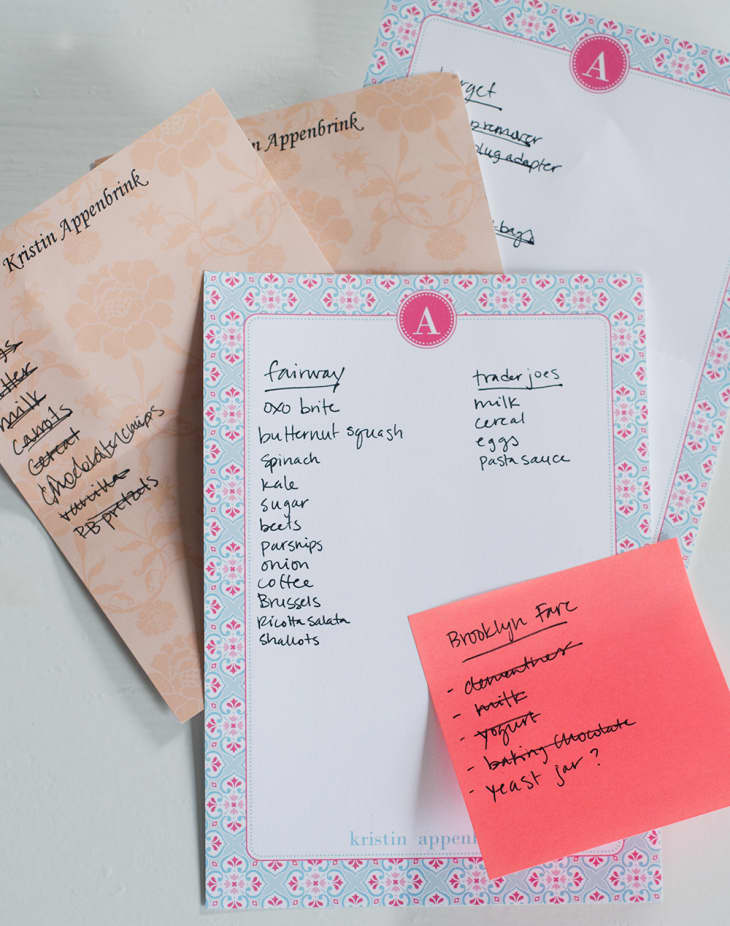 A
Target
plug adapter
bags
Kristin Appenbrink
Kristin Appenbrink
milk
carrots
cereal
chocolate chips
vanilla
PB pretzels
A
fairway
oxo brite
butternut squash
spinach
kale
sugar
beets
parsnips
onion
coffee
Brussels
Ricotta Salata
shallots
trader joes
milk
cereal
eggs
pasta sauce
kristin appen
Brooklyn Fare
- clementines
- milk
- yogurt
- baking chocolate
- yeast jar?